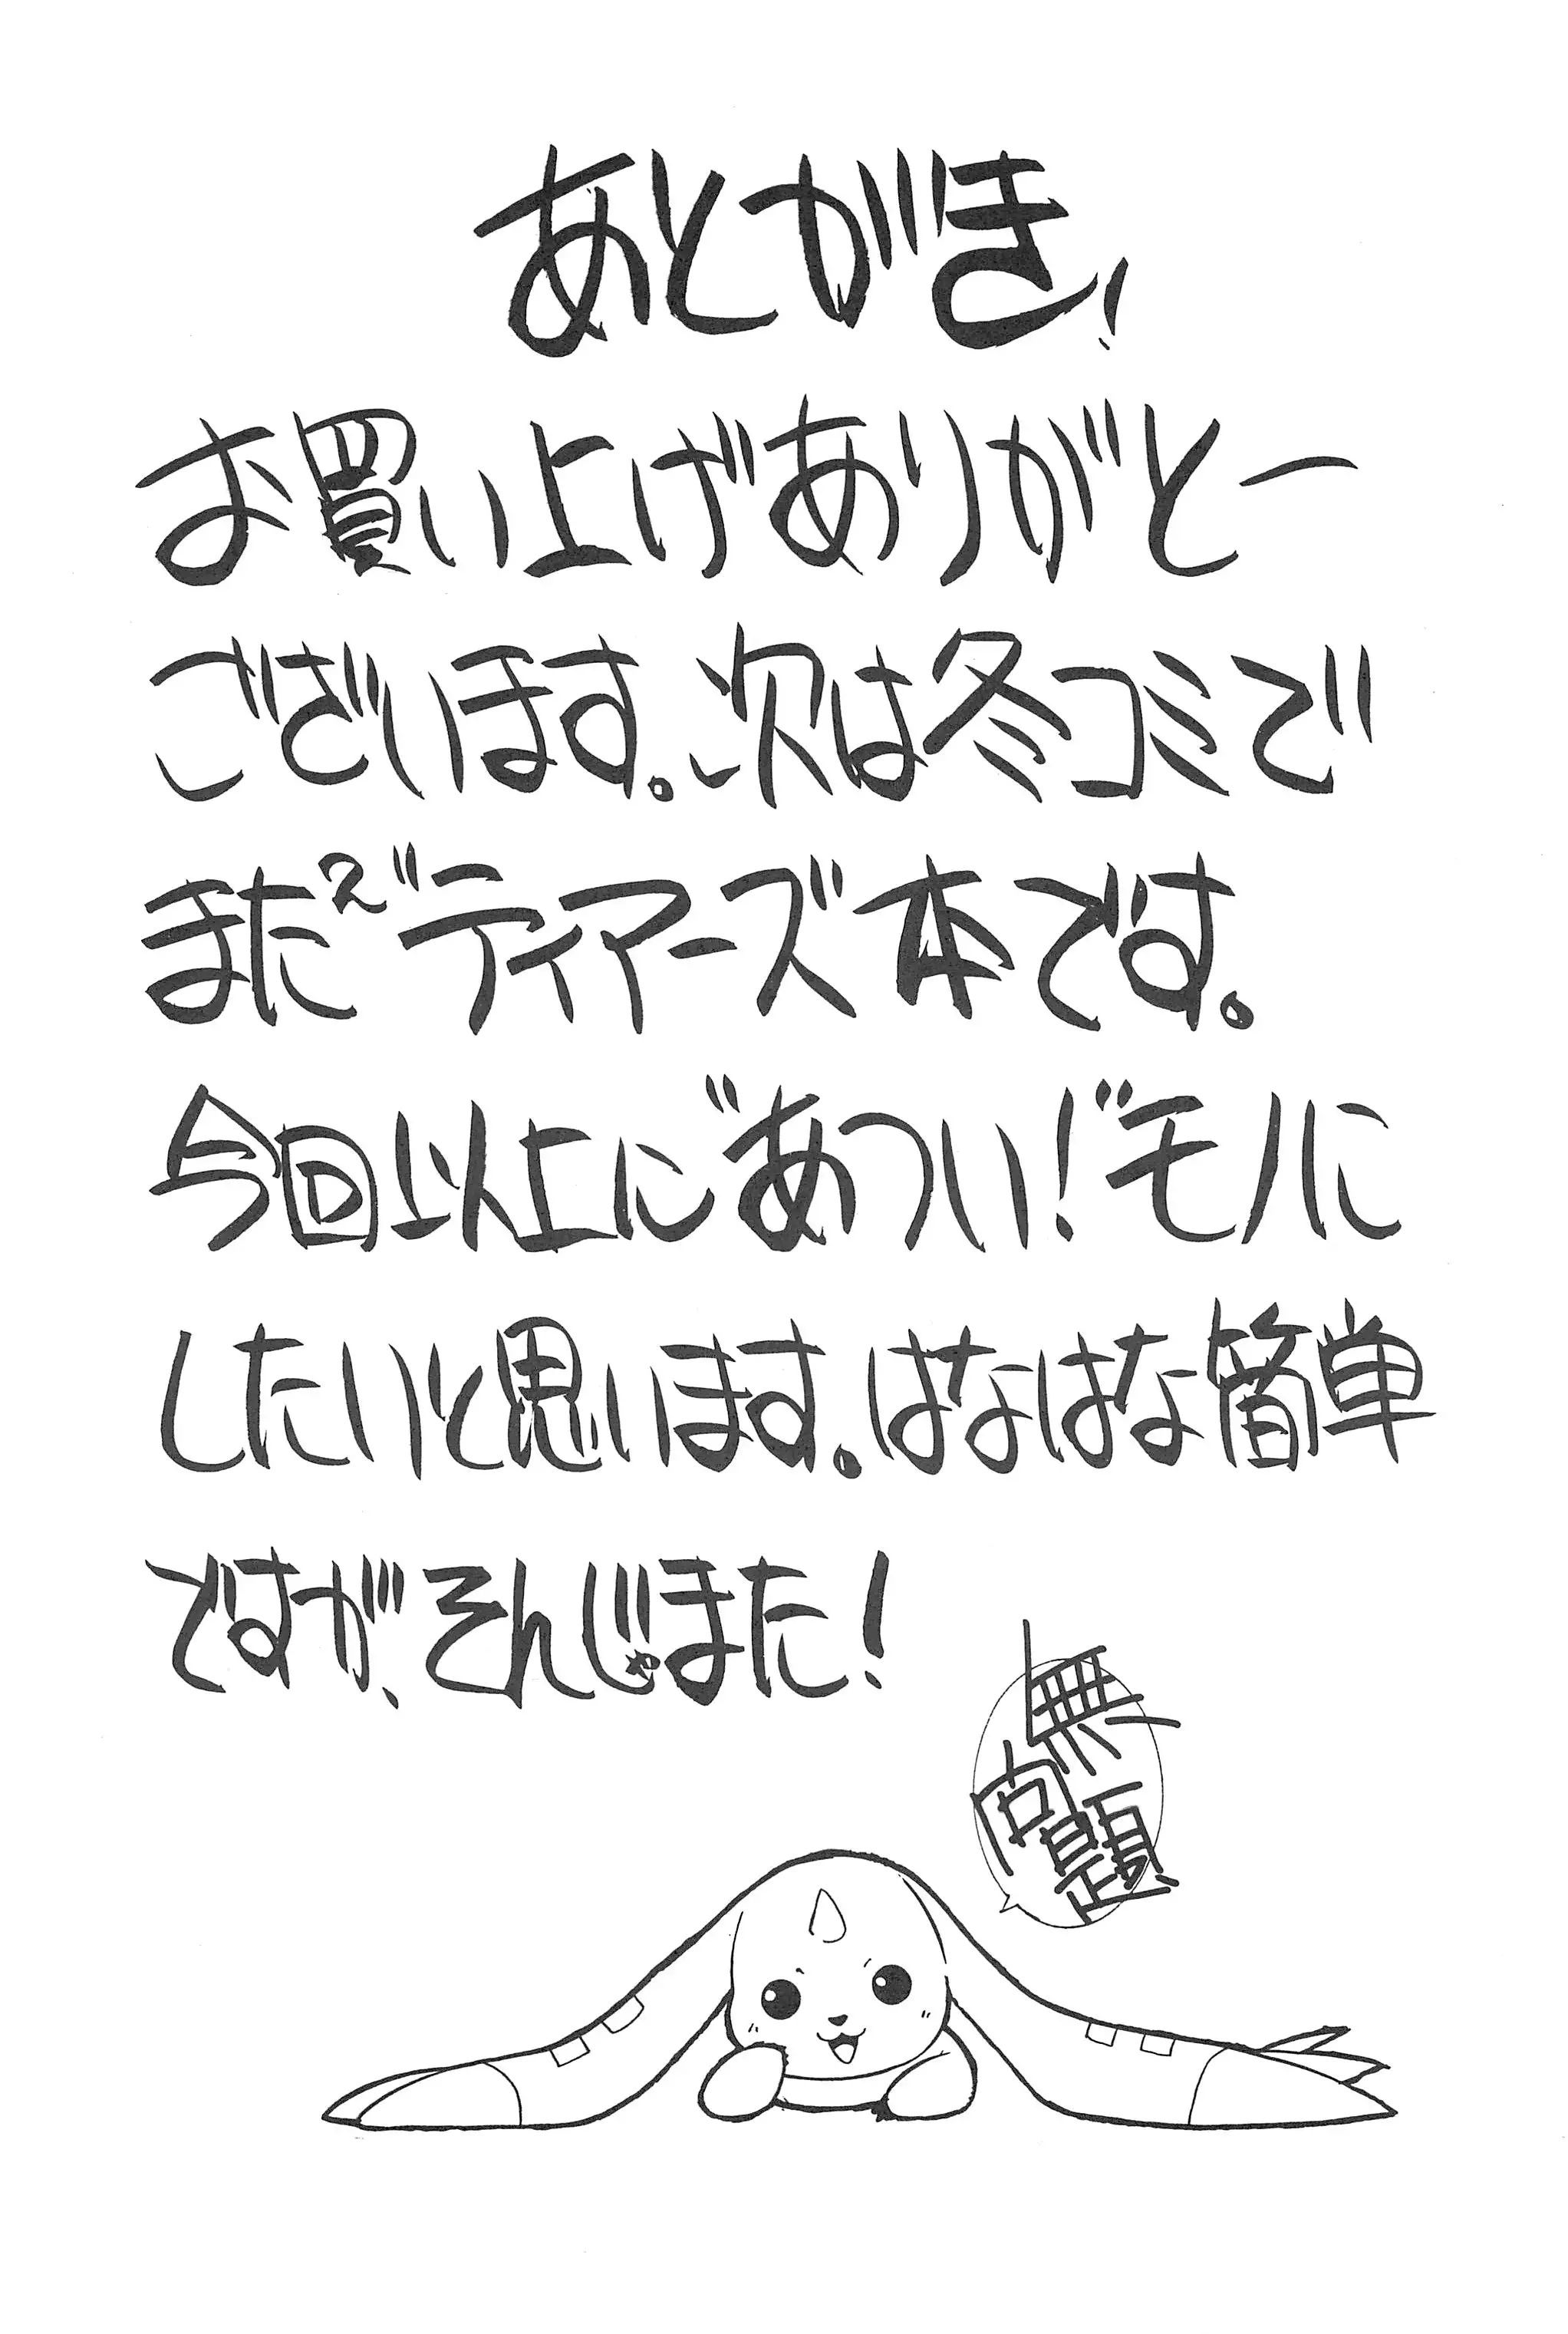 あとがき!
お買い上げありがとー
ございます。次は冬コミで
また²"ティアーズ本です。
今回以上に"あつい!"モノに
したいと思います。はなはな簡単
ですが、そんじゃまた!
無
問題